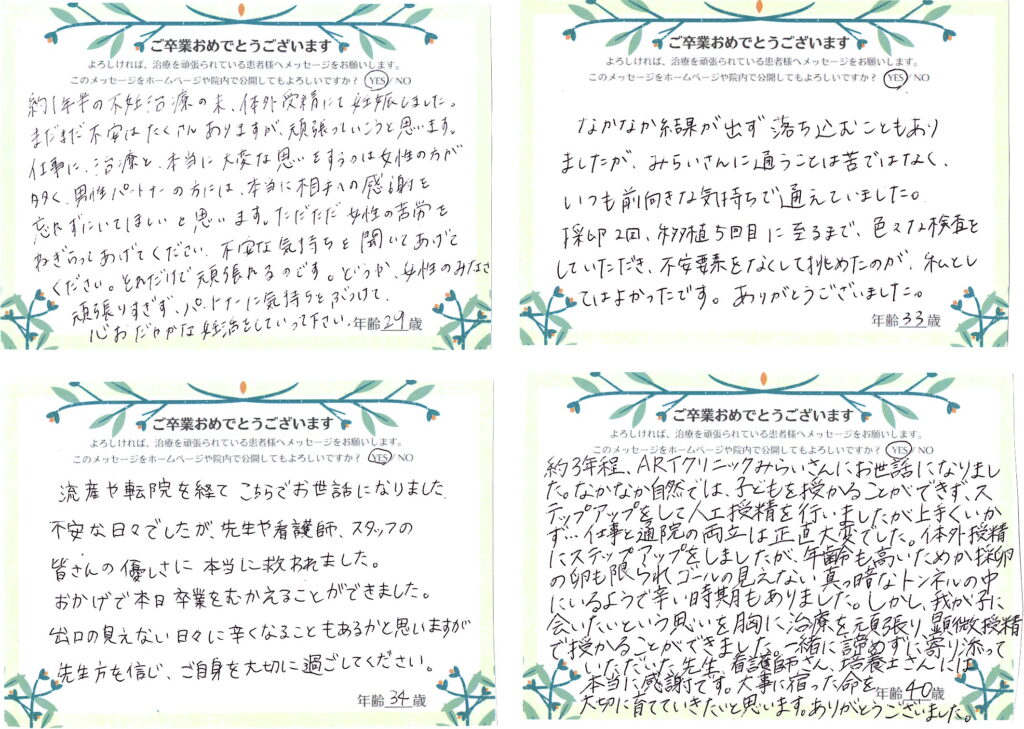 ご卒業おめでとうございます
よろしければ、治療を頑張られている患者様へメッセージをお願いします。
このメッセージをホームページや院内で公開してもよろしいですか? YES/NO
約1年半の不妊治療の末、体外受精にて妊娠しました。
まだまだ不安はたくさんありますが、頑張っていこうと思います。
仕事に、治療と、本当に大変な思いをするのは女性の方が
多く、男性パートナーの方には、本当に相手への感謝を
忘れずにいてほしいと思います。ただただ女性の苦労を
ねぎらってあげてください。不安な気持ちを聞いてあげて
ください。それだけで頑張れるのです。どうか、女性のみなさま
頑張りすぎず、パートナーに気持ちをぶつけて、
心おだやかな妊活をしていって下さい。
年齢 29 歳
ご卒業おめでとうございます
よろしければ、治療を頑張られている患者様へメッセージをお願いします。
このメッセージをホームページや院内で公開してもよろしいですか? YES/NO
なかなか結果が出ず落ち込むこともあり
ましたが、みらいさんに通うことは苦ではなく、
いつも前向きな気持ちで通えていました。
採卵2回、移植5回目に至るまで、色々な検査を
していただき、不安要素をなくして挑めたのが、私とし
てはよかったです。ありがとうございました。
年齢 33 歳
ご卒業おめでとうございます
よろしければ、治療を頑張られている患者様へメッセージをお願いします。
このメッセージをホームページや院内で公開してもよろしいですか? YES/NO
流産や転院を経てこちらでお世話になりました
不安な日々でしたが、先生や看護師、スタッフの
皆さんの優しさに本当に救われました。
おかげで本日卒業をむかえることができました。
出口の見えない日々に辛くなることもあるかと思いますが
先生方を信じ、ご自身を大切に過ごしてください。
年齢 34 歳
ご卒業おめでとうございます
よろしければ、治療を頑張られている患者様へメッセージをお願いします。
このメッセージをホームページや院内で公開してもよろしいですか? YES/NO
約3年程、ARTクリニックみらいさんにお世話になりまし
た。なかなか自然では、子どもを授かることができず、ス
テップアップをして人工授精を行いましたが上手くいか
ず…仕事と通院の両立は正直大変でした。体外授精
にステップアップをしましたが、年齢も高いためか採卵
の卵も限られゴールの見えない真っ暗なトンネルの中
にいるようで辛い時期もありました。しかし、我が子に
会いたいという思いを胸に治療を頑張り、顕微授精
で授かることができました。一緒に諦めずに寄り添って
いただいた先生、看護師さん、培養士さんには
本当に感謝です。大事に宿った命を
大切に育てていきたいと思います。ありがとうございました。
年齢 40 歳